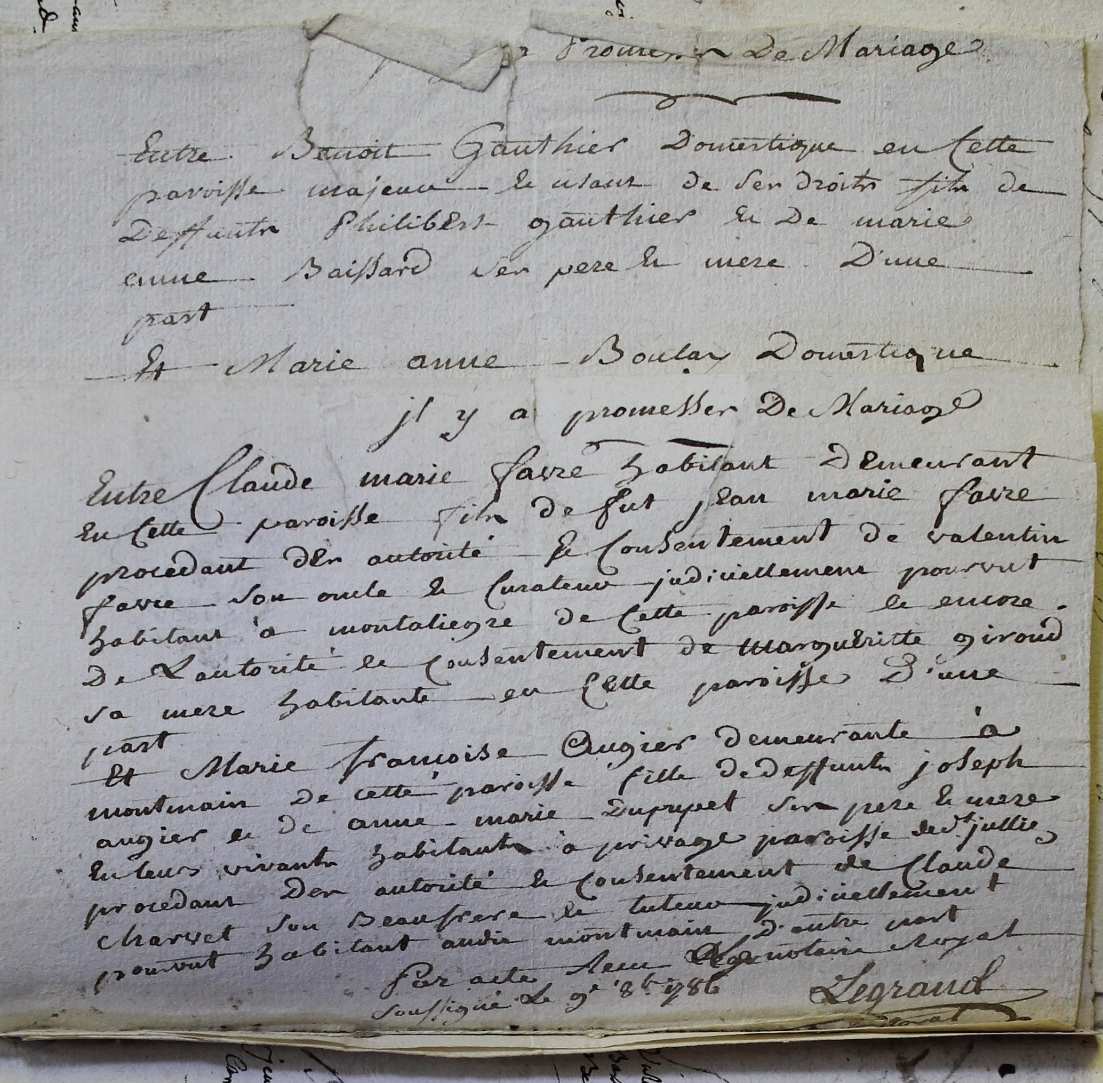 Promesses De Mariage
Entre Benoit Gauthier Domestique en Cette
paroisse majeur Et usant de ses droits fils de
Deffunts Philibert gauthier Et De marie
anne Baissard ses pere Et mere D'une
part
Et Marie anne Boulay Domestique
jl y a promesses De Mariage
Entre Claude marie favre habitant Demeurant
En Cette paroisse fils de fut jean marie favre
procedant Des autorité Et Consentement de valentin
favre son oncle Et Curateur judiciellement pourvut
habitant à montaliegre de Cette paroisse Et encore
De Lautorité Et Consentement de Margueritte giroud
sa mere habitante en Cette paroisse D'une
part
Et Marie francoise Augier demeurante à
montmain De cette paroisse fille de deffunts joseph
augier Et de anne marie Dupupet ses pere Et mere
En leurs vivants habitants à privage paroisse de st jullie
procedant Des autorité Et Consentement de Claude
Charvet son Beaufrere Et tuteur judiciellement
pourvut habitant audit montmain d'autre part
Par acte Recu notaire Royal
soussigné Le 9e 8bre 1786
Legrand